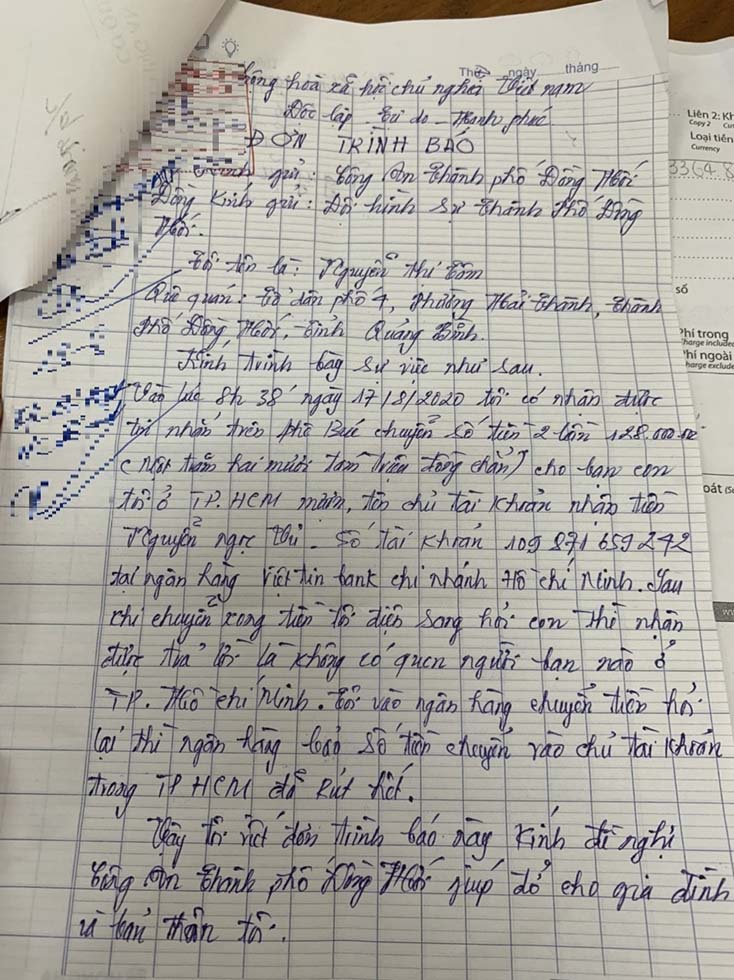 Thứ ngày tháng
Cộng hoà xã hội chủ nghĩa Việt nam
Độc lập - Tự do - Hạnh phúc
ĐƠN TRÌNH BÁO
Kính gửi: Công An Thành phố Đồng Hới
Đồng Kính gửi: Đội hình sự Thành phố Đồng
Hới.
Tôi tên là: Nguyễn Thị Tâm
Quê quán: Tổ dân phố 4, Phường Hải Thành, Thành
phố Đồng Hới, Tỉnh Quảng Bình.
Kính trình bày sự việc như sau.
Vào lúc 8h 38' ngày 17/8/2020 tôi có nhận được
tin nhắn trên phê Búc chuyển số tiền 2 lần 128.000.000
(Một trăm hai mươi tám triệu đồng chẵn) cho bạn con
tôi ở TP.HCM mượn, tên chủ tài khoản nhận tiền
Nguyễn ngọc Thi - Số tài khoản 109 871 659 242
tại ngân hàng Việt tin bank chi nhánh Hồ Chí Minh. Sau
khi chuyển xong tiền tôi điện sang hỏi con thì nhận
được trả lời là không có quen người bạn nào ở
TP. Hồ Chí Minh. Tôi vào ngân hàng chuyển tiền hỏi
lại thì ngân hàng báo số tiền chuyển vào chủ tài khoản
trong TP HCM đã Rút hết.
Vậy tôi viết đơn trình báo này Kính đề nghị
Công An Thành phố Đồng Hới giúp đỡ cho gia đình
và bản thân tôi.
Liên 2: Kh
Copy 2 Cu
Loại tiền
Currency
33648
số
Phí trong
Charge include
Phí ngoài
Charge exclude
oát (S